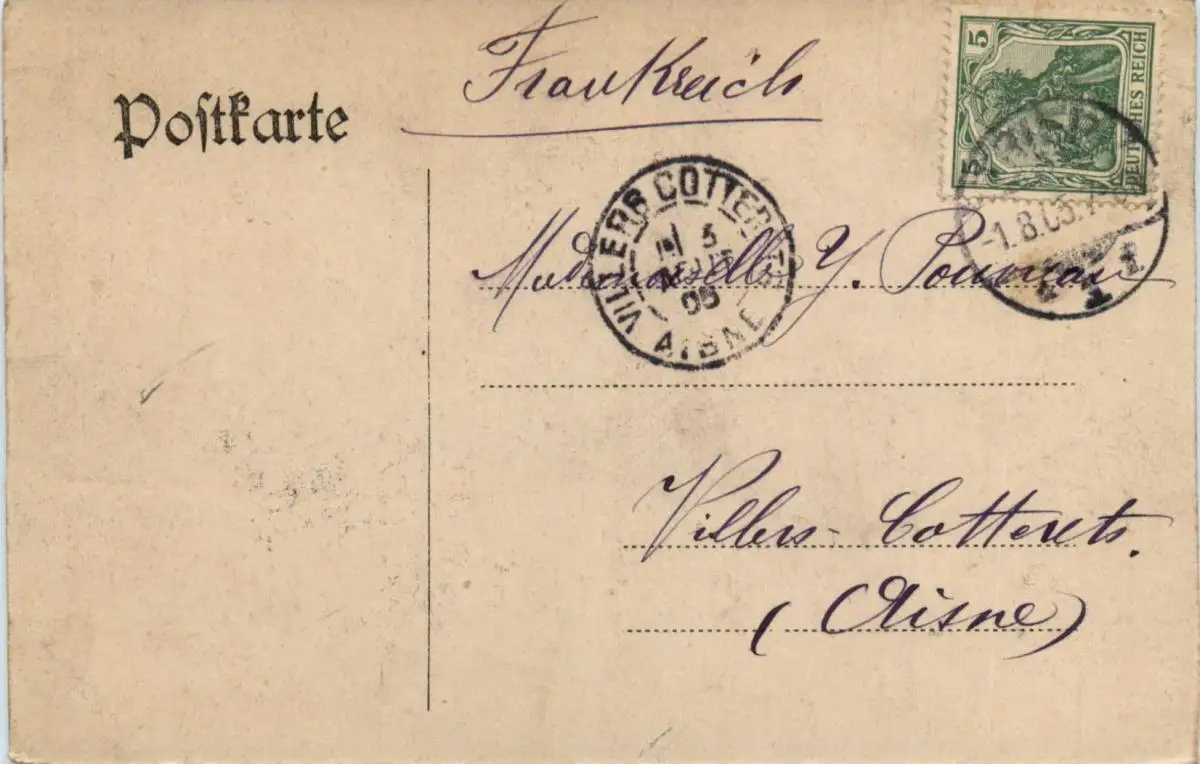 Frankreich
Postkarte
5
5
DEUTSCHES REICH
VILLERS COTTERETS
3
05
AISNE
-1.8.05.
Mademoiselle Y.
Villers-Cotterets.
(Aisne)